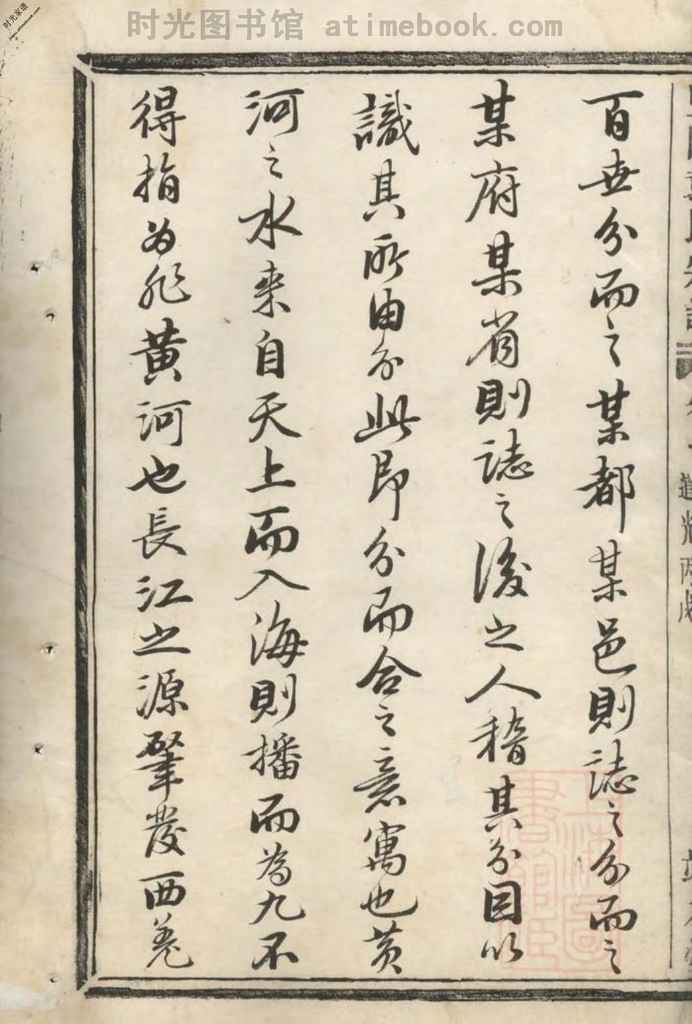 时光图书馆 atimebook.com
百世分而之某都某邑則誌之分而之
某府某省則誌之後之人稽其分因以
識其所由分此即分而合之意寓也黄
河之水来自天上而入海則播而為九不
得指为非黄河也長江之源肇發西羌